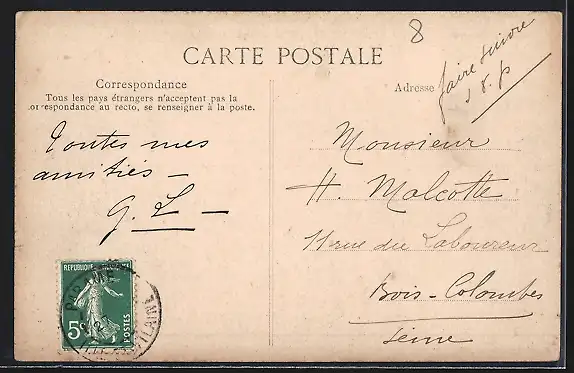 8
CARTE POSTALE
Correspondance
Tous les pays étrangers n'acceptent pas la
correspondance au recto, se renseigner à la poste.
Adresse
faire suivre
s.v.p
Toutes mes
amitiés –
G. L –
Monsieur
H. Malcotte
11 rue du Laboureur
Bois-Colombes
Seine
REPUBLIQUE FRANÇAISE
5c
POSTES
PARAMÉ
ILLE-ET-VILAINE